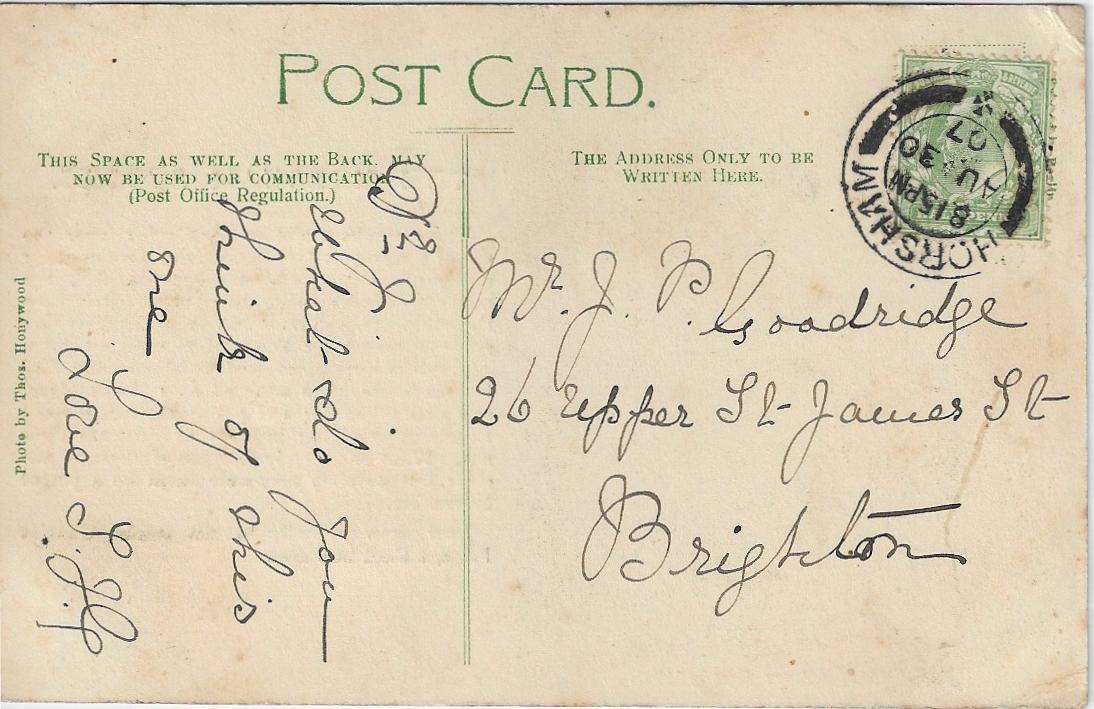 POST CARD.
THIS SPACE AS WELL AS THE BACK. MAY
NOW BE USED FOR COMMUNICATION
(Post Office Regulation.)
THE ADDRESS ONLY TO BE
WRITTEN HERE.
HORSHAM
8 15 PM
AU 30
07
Dr J.
What do you
think of this
one
Love
Mr. J. P. Goodridge
26 Upper St James St
Brighton
Photo by Thos. Honywood